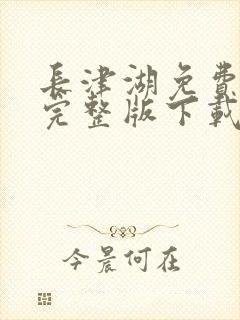 長津湖免費
完整版下載
今晨何在